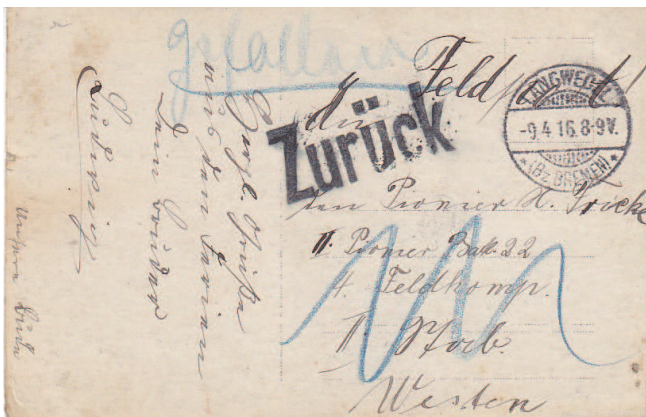 gefallen
Feldpost!
Zurück
LANGWEDEL
-9.4.16.8-9V.
* (Bz. BREMEN) *
An
den Pionier H. Fricke
II. Pionier Batl. 22
4. Feldkomp.
Westen
Herzl. Grüße
aus den Ferien
Dein Bruder
Ludwig